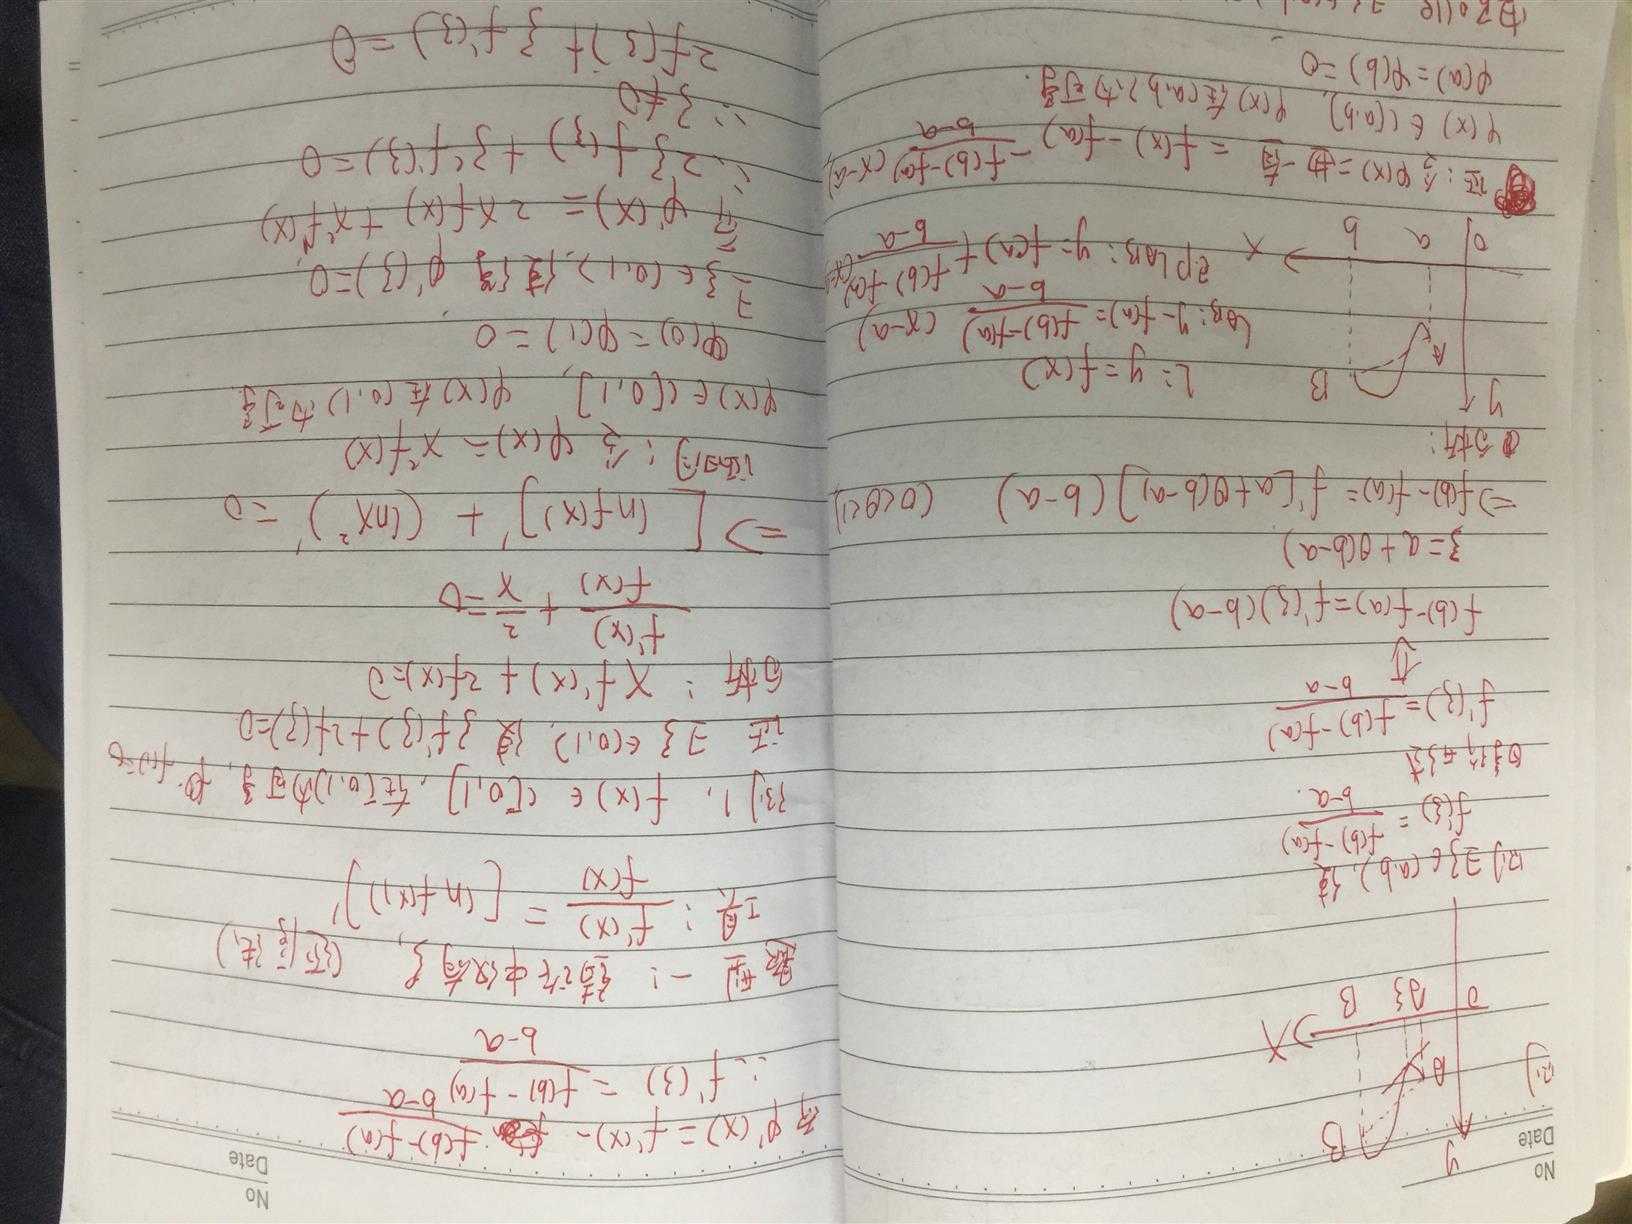 No
Date
则)
y
B
A
0 A ξ B X
则 ∃ξ∈(a,b), 使
f'(ξ) = \frac{f(b)-f(a)}{b-a}.
f'(ξ) = \frac{f(b)-f(a)}{b-a}
⇕
f(b)-f(a)=f'(ξ)(b-a)
ξ=a+θ(b-a)
⇒ f(b)-f(a)= f'[a+θ(b-a)](b-a) (0<θ<1)
分析:
y
B
A
0 a b X
L: y=f(x)
L_{AB}: y-f(a)= \frac{f(b)-f(a)}{b-a} (x-a)
即L_{AB}: y=f(a)+\frac{f(b)-f(a)}{b-a}
证: 令φ(x)=曲-直 = f(x)-f(a)-\frac{f(b)-f(a)}{b-a}(x-a)
φ(x)∈C[a,b], φ(x)在(a,b)内可导.
φ(a)=φ(b)=0
由Rolle
No
Date
而φ'(x)=f'(x)-\frac{f(b)-f(a)}{b-a}
∴ f'(ξ) = \frac{f(b)-f(a)}{b-a}
题型一:
工具: \frac{f'(x)}{f(x)} = [ln f(x)]'
例1, f(x)∈C[0,1], 在(0,1)内可导, f(1)=0
证 ∃ξ∈(0,1), 使 ξf'(ξ)+2f(ξ)=0
分析: Xf'(x)+2f(x)=0
\frac{f'(x)}{f(x)} + \frac{2}{X}=0
⇒ [ln f(x)]' + (lnX²)' =0
证明): 令 φ(x)= X²f(x)
φ(x)∈C[0,1], φ(x)在(0,1)内可导.
φ(0)=φ(1)=0
∃ξ∈(0,1), 使得 φ'(ξ)=0,
而 φ'(x)= 2Xf(x)+X²f'(x)
∴ 2ξf(ξ)+ξ²f'(ξ)=0
∵ ξ≠0
2f(ξ)+ξf'(ξ)=0